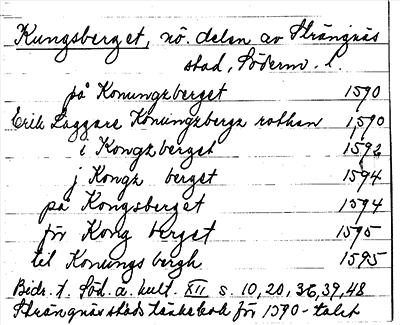 Kungsberget, nö. delen av Strängnäs
stad, Söderm. l.
på Konungzberget 1590
Erik Laggare Konungzbergz rothan 1590
i Kongzberget 1592
j Kongz berget 1594
på Kongsberget 1594
för Kong berget 1595
til Konungs bergh 1595
Bidr. t. Söd. ä. kult. XII s. 10, 20, 36, 39, 48
Strängnäs stads tänkebok för 1590-talet